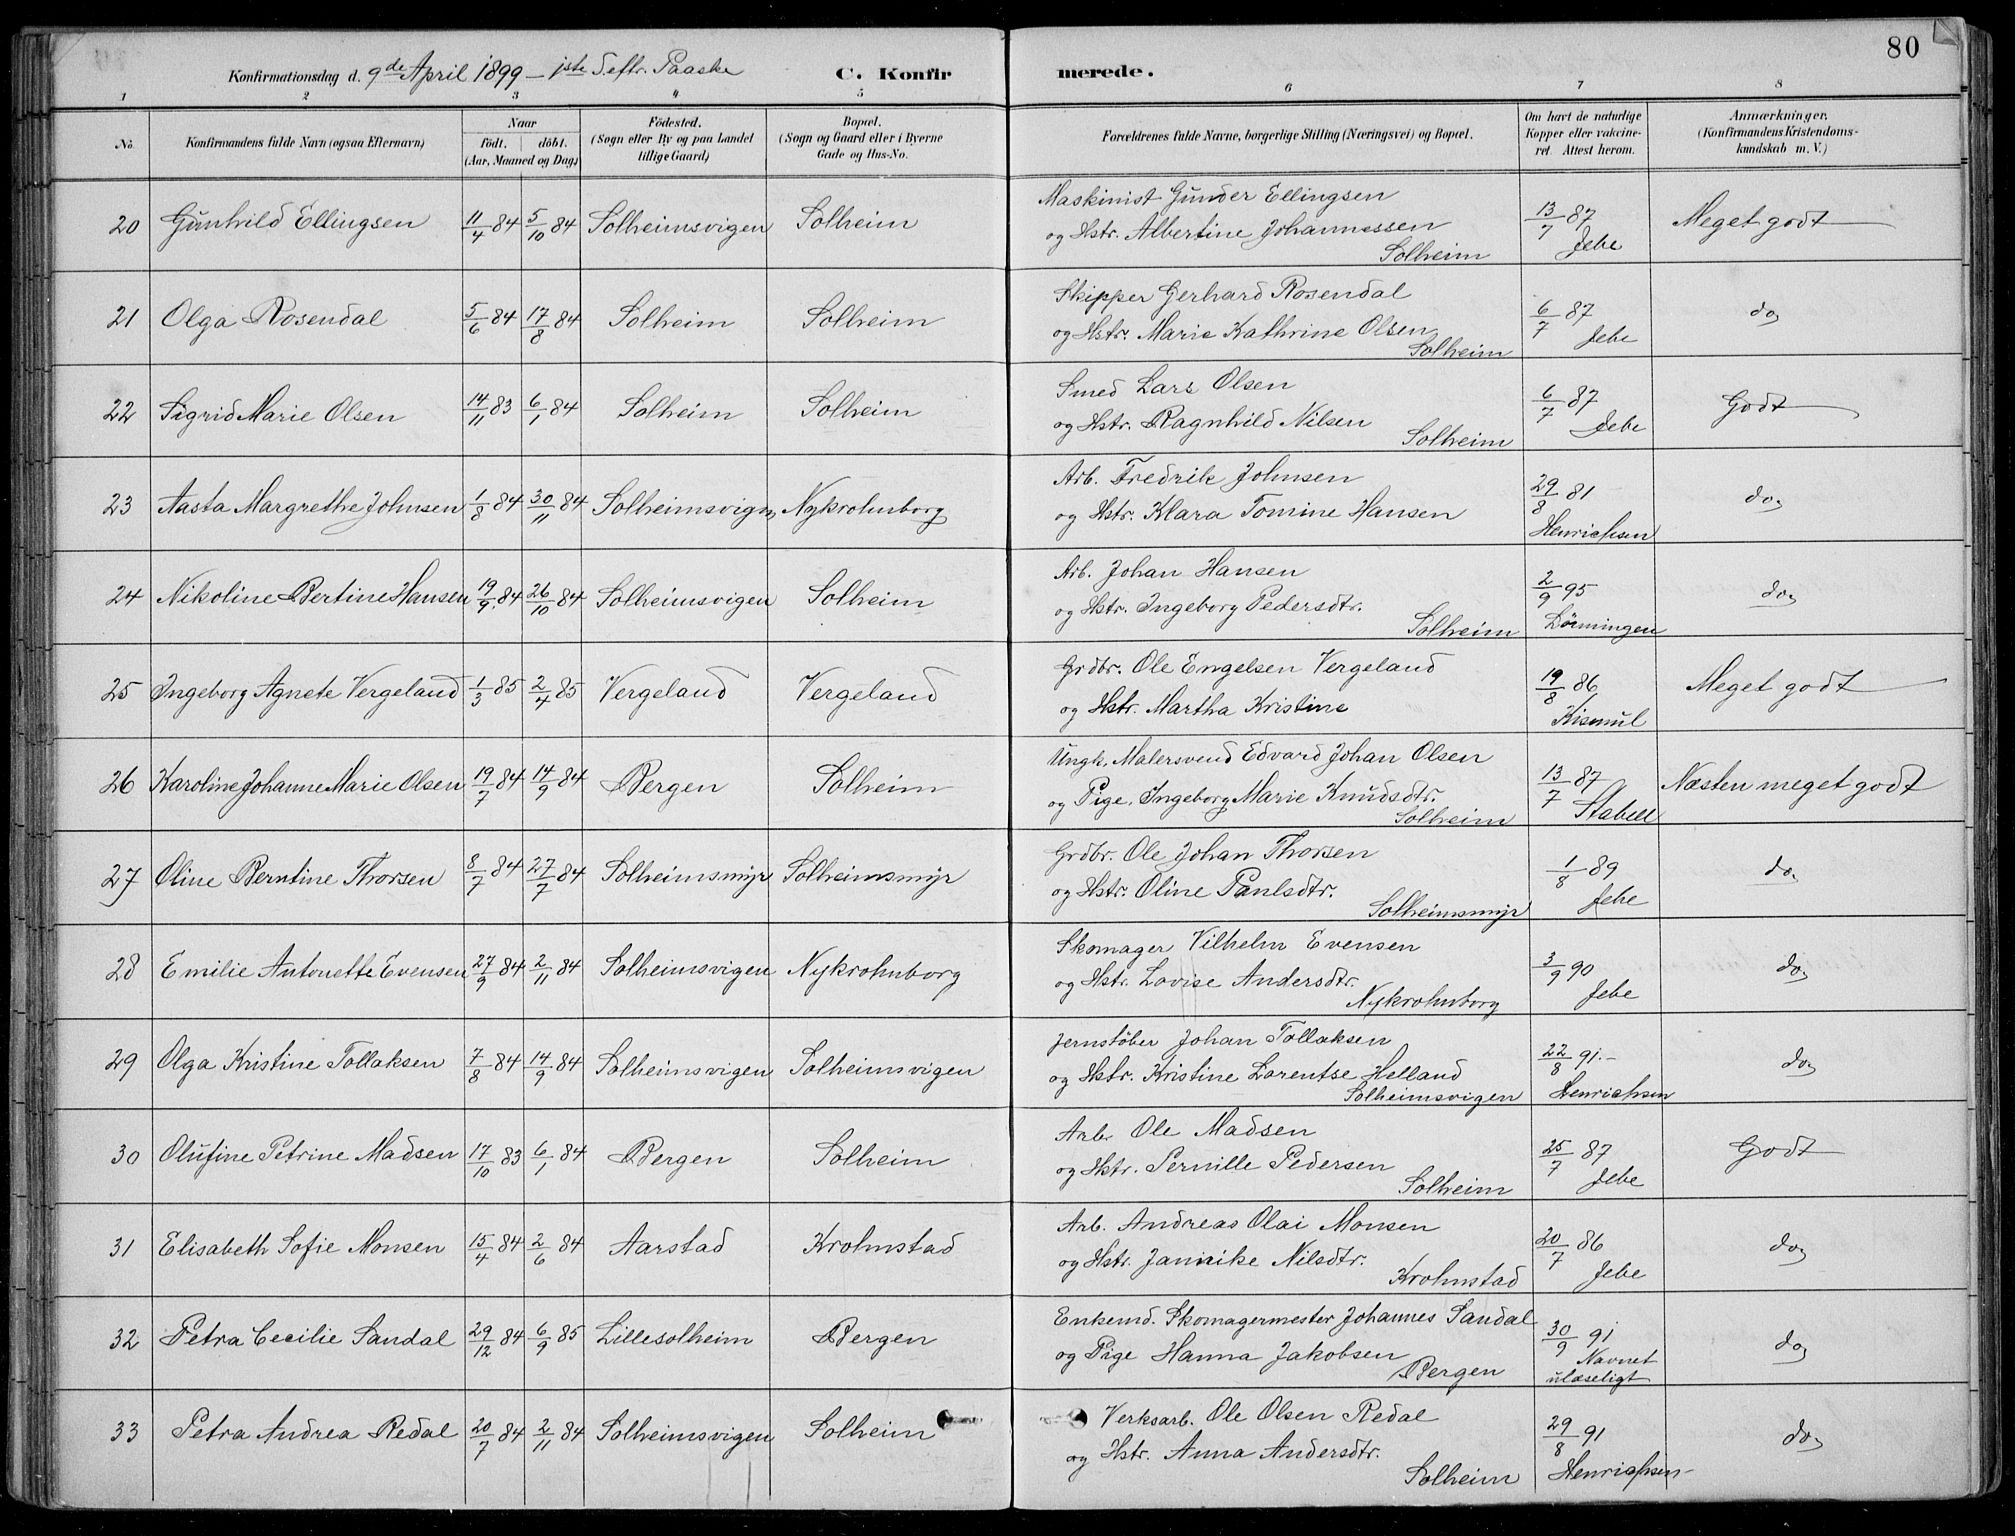 80
Konfirmationsdag d. 9de April 1899 – 1ste S. eftr. Paaske C. Konfirmerede.
1 2 3 4 5 6 7 8
No. Konfirmandens fulde Navn (ogsaa Efternavn) Naar födt. döbt. (Aar, Maaned og Dag) Födested. (Sogn eller By og paa Landet tillige Gaard) Bopæl. (Sogn og Gaard eller i Byerne Gade og Hus-No. Forældrenes fulde Navne, borgerlige Stilling (Næringsvei) og Bopæl. Om havt de naturlige Kopper eller vakcineret. Attest herom. Anmærkninger. (Konfirmandens Kristendomskundskab m. V.)
20 Gunhild Ellingsen 11/4 84 5/10 84 Solheimsvigen Solheim Maskinist Gunder Ellingsen 13/7 87 Meget godt
og Hstr. Albertine Johannessen Jebe
Solheim
21 Olga Rosendal 5/6 84 17/8 84 Solheim Solheim Skipper Gerhard Rosendal 6/7 87 do,
og Hstr. Marie Kathrine Olsen Jebe
Solheim
22 Sigrid Marie Olsen 14/11 83 6/1 84 Solheim Solheim Smed Lars Olsen 6/7 87 Godt
og Hstr. Ragnhild Nilsen Jebe
Solheim
23 Aasta Margrethe Johnsen 1/8 84 30/11 84 Solheimsvign, Nykrohnborg Arb. Fredrik Johnsen 29/8 81 do,
og Hstr. Klara Tomine Hansen Henrichsen
24 Nikoline Bertine Hansen 19/9 84 26/10 84 Solheimsvigen Solheim Arb. Johan Hansen 2/9 95 do,
og Hstr. Ingeborg Pedersdtr.
Solheim
25 Ingeborg Agnete Vergeland 1/3 85 2/4 85 Vergeland Vergeland Grdbr. Ole Engelsen Vergeland 19/8 86 Meget godt
og Hstr. Martha Kristine Kismul
26 Karoline Johanne Marie Olsen 19/7 84 14/9 84 Bergen Solheim Ungk. Malersvend Edvard Johan Olsen 13/7 87 Næsten meget godt
og Pige. Ingeborg Marie Knudsdtr. Stabell
Solheim
27 Oline Berntine Thorsen 8/7 84 27/7 84 Solheimsmyr Solheimsmyr Grdbr. Ole Johan Thorsen 1/8 89 do.
og Hstr. Oline Paulsdtr. Jebe
Solheimsmyr
28 Emilie Antonette Evensen 27/9 84 2/11 84 Solheimsvigen Nykrohnborg Skomager Vilhelm Evensen 3/9 90 do,
og Hstr. Lovise Andersdtr. Jebe
Nykrohnborg
29 Olga Kristine Tollaksen 7/8 84 14/9 84 Solheimsvigen Solheimsvigen Jernstöber Johan Tollaksen 22/8 91.– do,
og Hstr. Kristine Lorentse Helland Henrichsen
Solheimsvigen
30 Olufine Petrine Madsen 17/10 83 6/1 84 Bergen Solheim Arb. Ole Madsen 25/7 87 Godt
og Hstr. Pernille Pedersen Jebe
Solheim
31 Elisabeth Sofie Monsen 15/4 84 2/6 84 Aarstad Krohnstad Arb. Andreas Olai Monsen 20/7 86 do,
og Hstr. Jannike Nilsdtr. Jebe
Krohnstad
32 Petra Cecilie Sandal 29/12 84 6/9 85 Lillesolheim Bergen Enkemd. Skomagermester Johannes Sandal 30/9 91 do,
og Pige Hanna Jakobsen Navnet
Bergen ulæseligt
33 Petra Andrea Redal 20/7 84 2/11 84 Solheimsvigen Solheim Verksarb. Ole Olsen Redal 29/8 91 do,
og Hstr. Anna Andersdtr. Henrichsen
Solheim